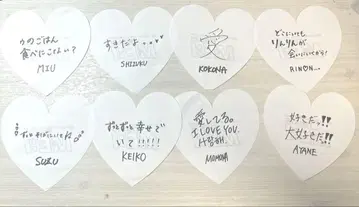 うのごはん
食べにこない?
MIU
すきだよ
SHIZUKU
愛
KOKONA
どこにいても
りんりんが
会いにいくから!
RINON
ずっとそばにいてね
SUZU
ずっとずっと幸せで
いて!!!!
KEIKO
愛してる。
I LOVE YOU.
MOMOKA
好きだっ!!
大好きだ!!
AYANE